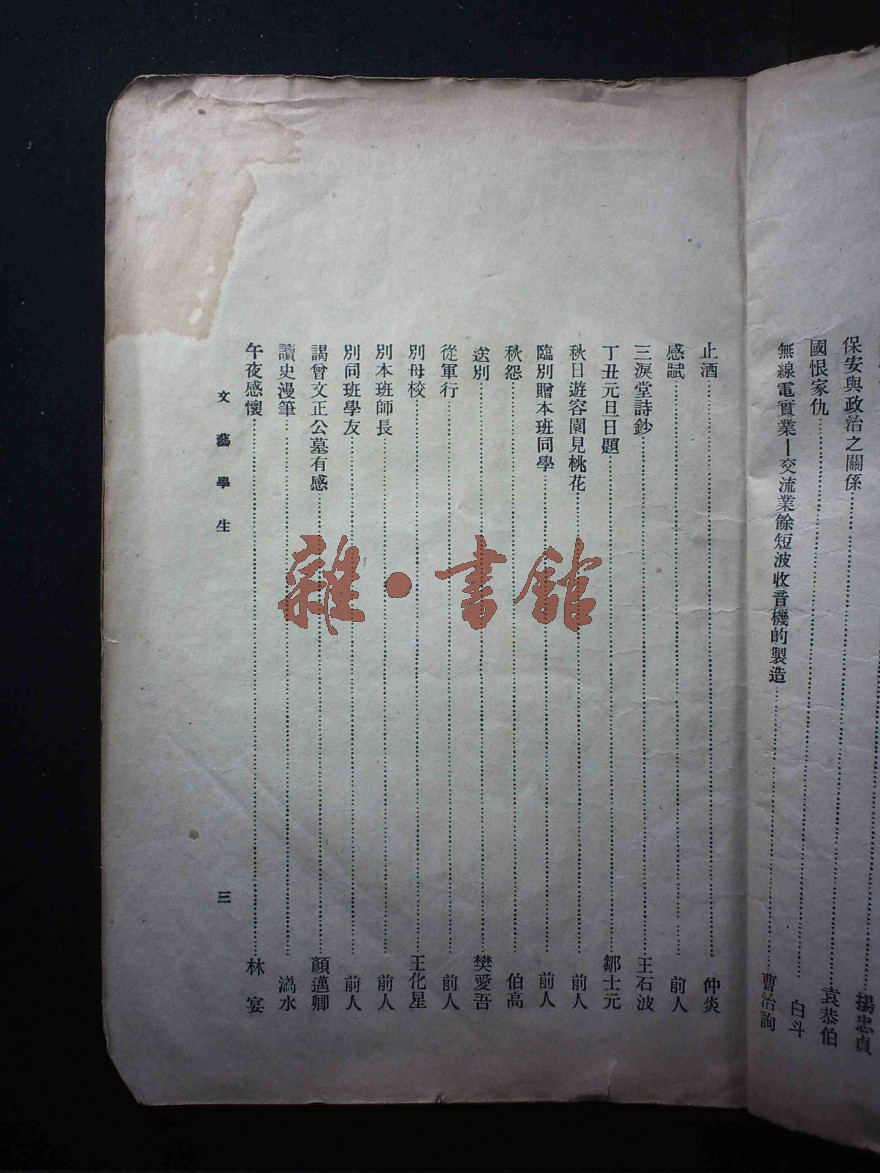 揚忠貞
保安與政治之關係……袁恭伯
國恨家仇……白斗
無線電實業—交流業餘短波收音機的製造……曹治詢
止酒……仲炎
感賦……前人
三淚堂詩鈔……王石波
丁丑元旦日題……鄒士元
秋日遊容園見桃花……前人
臨別贈本班同學……前人
秋怨……伯高
送別……樊愛吾
從軍行……前人
別母校……王化星
別本班師長……前人
別同班學友……前人
謁曾文正公墓有感……顏邁卿
讀史漫筆……溈水
午夜感懷……林宴
文藝學生 三
雜·書館